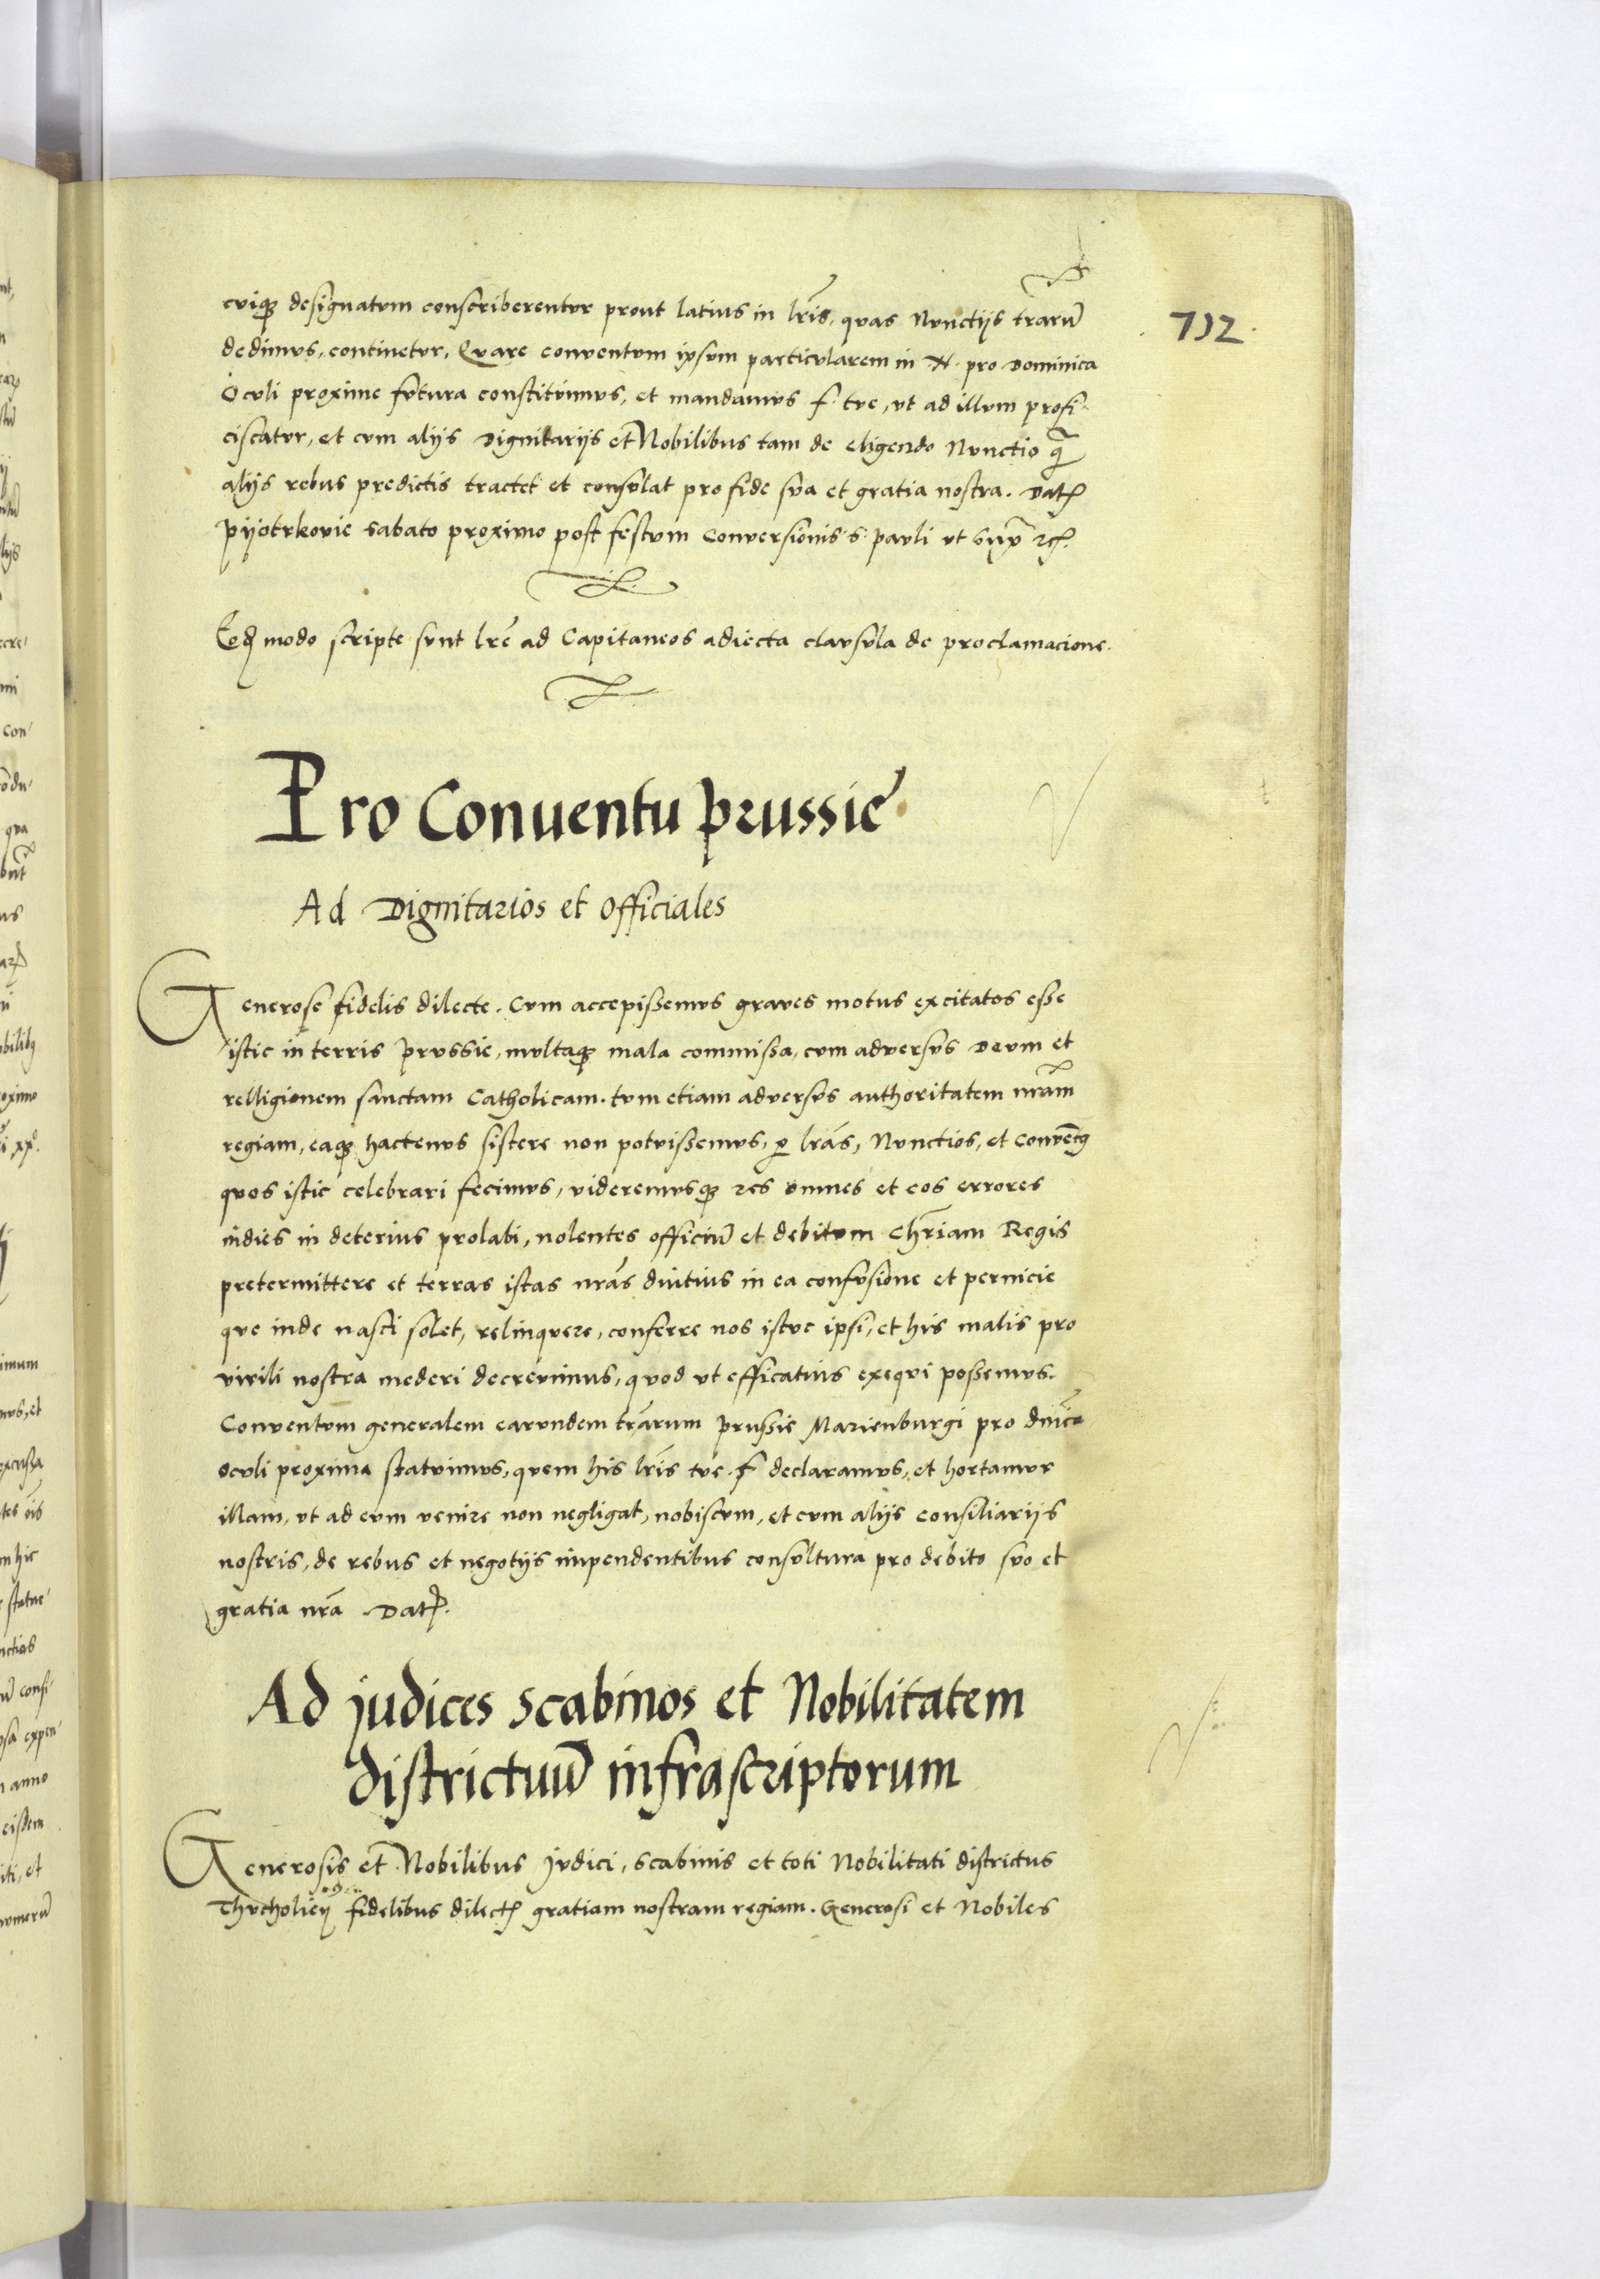 cuiq designatum conscriberentur prout latius in lris, quas Nunctijs trarū
732.
dedimus, continetur, Quare conuentum ipsum particularem in N. pro Dominica
Oculi proxime futura constituimus, et mandamus f. tue, ut ad illum profi-
ciscatur, et cum alijs Dignitarijs et Nobilibus tam de eligendo Nunctio q̄
alijs rebus predictis tractet et consulat pro fide sua et gratia nostra. Dat
Pijotrkovie sabato proximo post festum Conversionis s. pauli ut supra
Eod modo scripte sunt lrē ad Capitaneos adiecta clausula de proclamacione.
Pro Conuentu Prussie
Ad Dignitarios et Officiales
Generose fidelis dilecte. Cum accepissemus graues motus excitatos esse
istic in terris Prussie, multaq mala commissa, cum aduersus Deum et
relligionem sanctam Catholicam. tum etiam aduersus authoritatem nram
regiam, eaq hactenus sistere non potuissemus, p lras, Nunctios, et Conuēt9
quos istic celebrari fecimus, uideremusq res omnes et eos errores
indies in deterius prolabi, nolentes officiū et debitum Chriam Regis
pretermittere et terras istas nras diutius in ea confusione et pernicie
que inde nasci solet, relinquere, conferre nos istuc ipsi, et his malis pro
virili nostra mederi decreuimus, quod ut efficatius exequi possemus.
Conuentum generalem earundem trarum Prussie Marienburgi pro dnica
oculi proxima statuimus, quem his lris tue. f declaramus, et hortamur
illam, ut ad eum uenire non negligat, nobiscum, et cum alijs Consiliarijs
nostris, de rebus et negotijs impendentibus consultura pro debito suo et
gratia nra Dat.
Ad judices scabinos et Nobilitatem
districtuū infrascriptorum
Generosis et Nobilibus Judici, Scabinis et toti Nobilitati districtus
Thucholien fidelibus dilect gratiam nostram regiam. Generosi et Nobiles